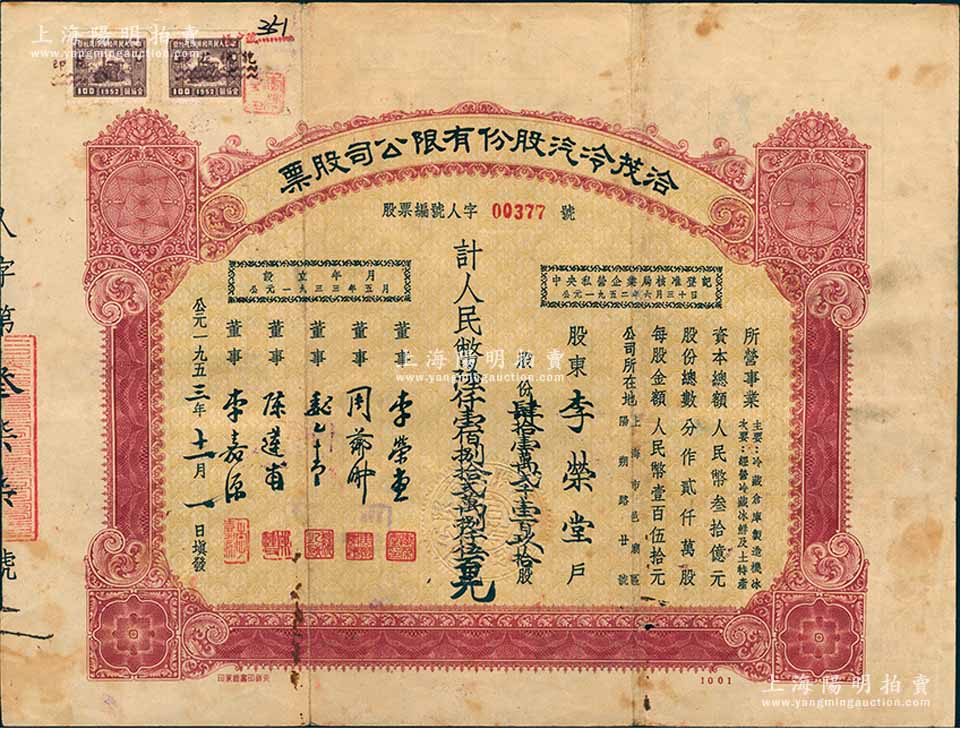 上海陽明拍賣
www.yangmingauction.com
351
100 1952
100 1952
洽茂冷汽股份有限公司股票
股票編號人字 00377 號
中央私營企業局核准登記
公元一九五二年六月三十日
設立年月
公元一九三三年五月
所營事業
主要：冷藏倉庫製造機冰
次要：經營冷藏冰鮮及土特產
資本總額 人民幣叁拾億元
股份總數 分作貳仟萬股
每股金額 人民幣壹百伍拾元
公司所在地 上海市邑廟區
陽朔路廿號
股東 李榮堂 戶
計人民幣陸仟壹佰捌拾貳萬捌仟伍百元
董事 李榮堂
董事 周
董事
董事 陳蓮甫
董事 李嘉源
公元一九五三年十一月一日填發
人字第叁柒柒號
上海陽明拍賣
www.yangmingauction.com
1001
上海陽明拍賣
www.yangmingauction.com